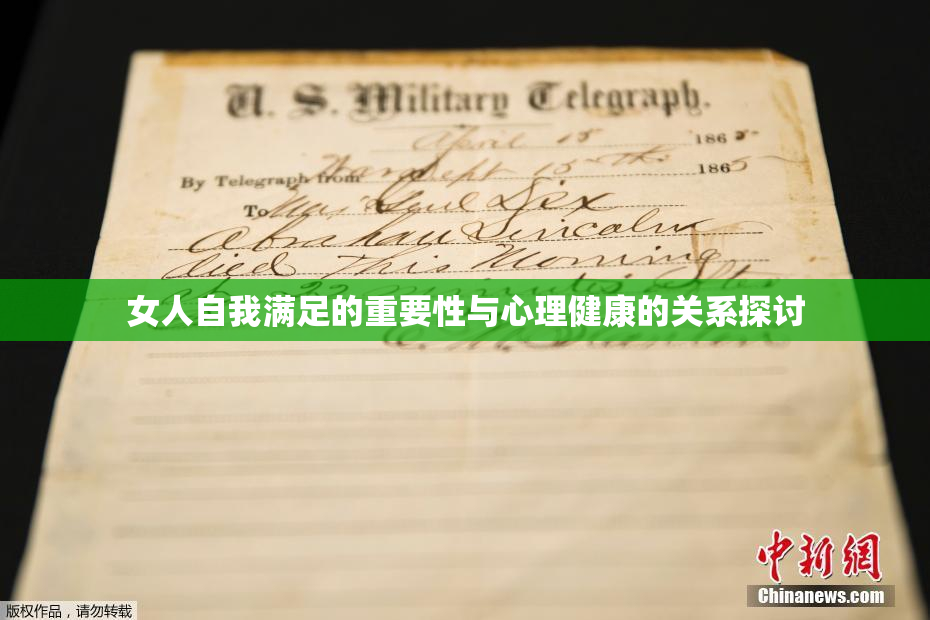 U. S. Military Telegraph.
April 15 1865
By Telegraph from War Dept 15th 1865
To Maj Genl Dix
Abraham Lincoln
died This Morning
22 minutes after
女人自我满足的重要性与心理健康的关系探讨
E. M. Stanton
中新网
Chinanews.com
版权作品，请勿转载